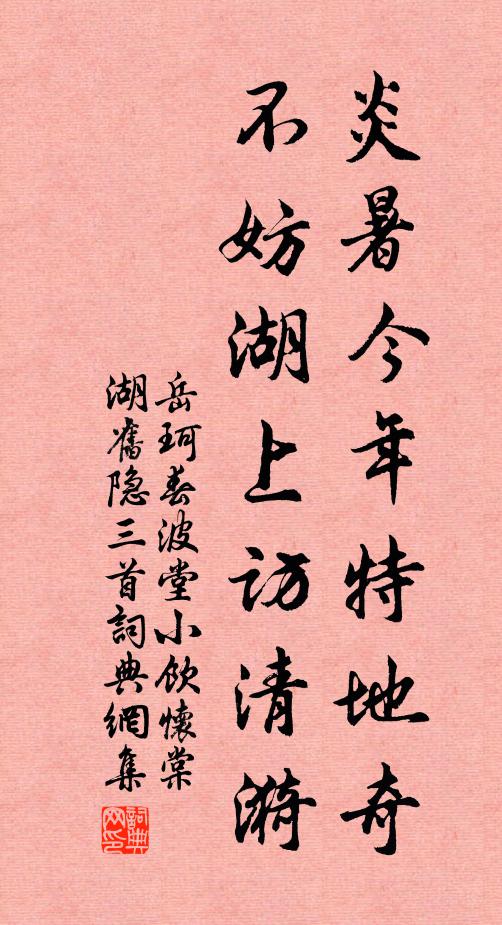 炎暑今年特地奇
不妨湖上访清漪
岳珂春波堂小饮怀棠
湖旧隐三首词典网集
词典
网印